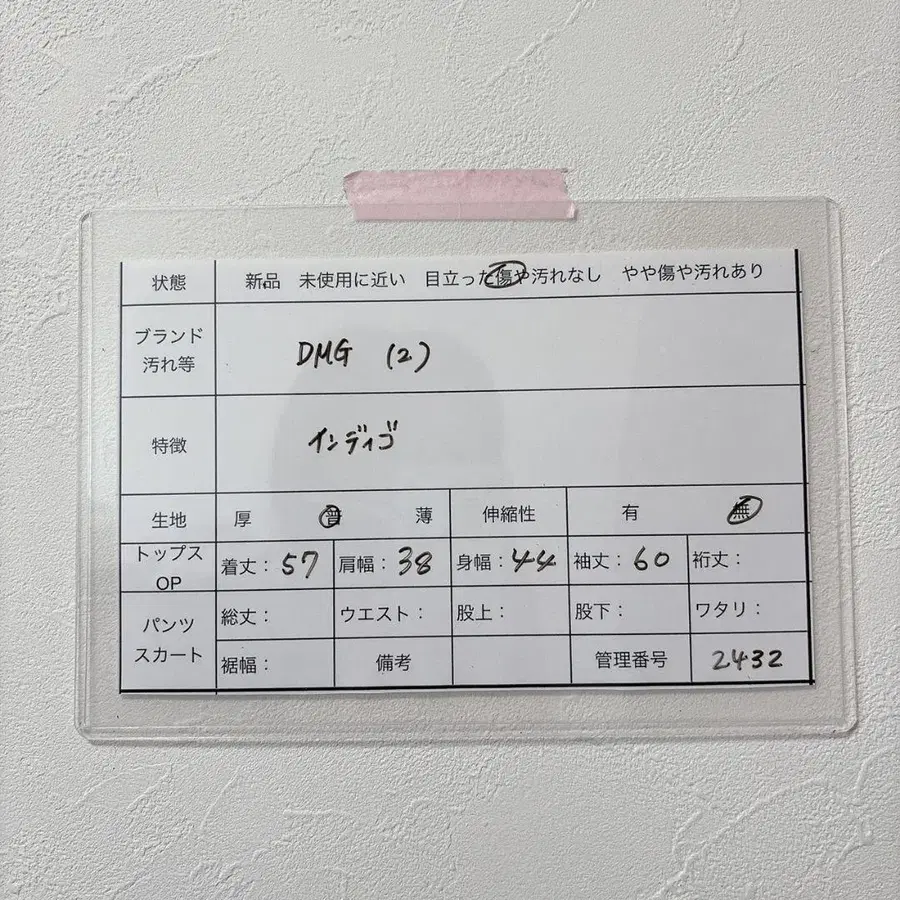 状態 新品 未使用に近い 目立った傷や汚れなし やや傷や汚れあり
ブランド
汚れ等 DMG (2)
特徴 インディゴ
生地 厚 普 薄 伸縮性 有 無
トップス
OP 着丈： 57 肩幅： 38 身幅： 44 袖丈： 60 裄丈：
パンツ
スカート 総丈： ウエスト： 股上： 股下： ワタリ：
裾幅： 備考 管理番号 2432